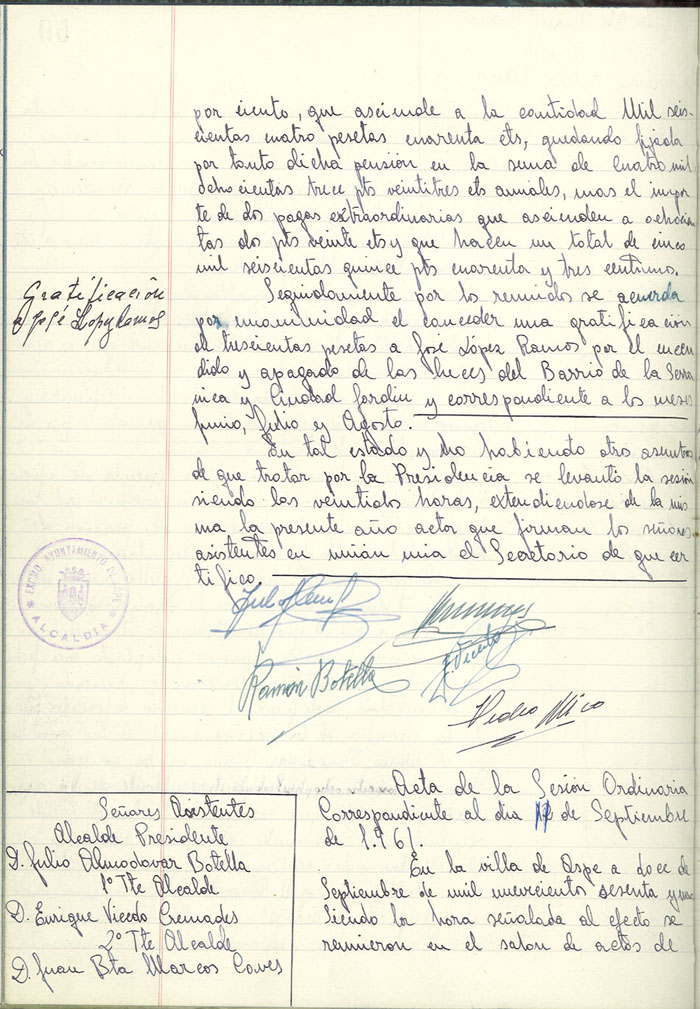 por ciento, que asciende a la cantidad Mil seis-
cientas cuatro pesetas cuarenta cts, quedando fijada
por tanto dicha pensión en la suma de cuatro mil
ochocientas trece pts veintitres cts anuales, mas el impor
te de dos pagas extraordinarias que ascienden a ochocien
tas dos pts veinte cts y que hacen un total de cinco
mil seiscientas quince pts cuarenta y tres centimos.
Gratificación
a José López Ramos
Seguidamente por los reunidos se acuerda
por unanimidad el conceder una gratificación
de trescientas pesetas a José López Ramos por el encen
dido y apagado de las luces del Barrio de la Serra
nica y Ciudad Jardin y correspondiente a los meses
Junio, Julio y Agosto.
En tal estado y no habiendo otro asuntos
de que tratar por la Presidencia se levantó la sesión
siendo las veintidos horas, extendiendose de la mis
ma la presente año actor que firman los señores
asistentes en unión mia el Secretario de que cer
tifico
EXCMO. AYUNTAMIENTO DE ASPE
ALCALDIA
Ramón Botella
J. Vicedo
Pedro Mico
Acta de la Sesión Ordinaria
Correspondiente al dia 12 de Septiembre
de 1.961.
En la villa de Aspe a doce de
Septiembre de mil novecientos sesenta y uno
siendo la hora señalada al efecto se
reunieron en el salon de actos de
Señares Asistentes
Alcalde Presidente
D. Julio Almodovar Botella
1º Tte Alcalde
D. Enrique Vicedo Cremades
2º Tte Alcalde
D. Juan Bta Marcos Caves